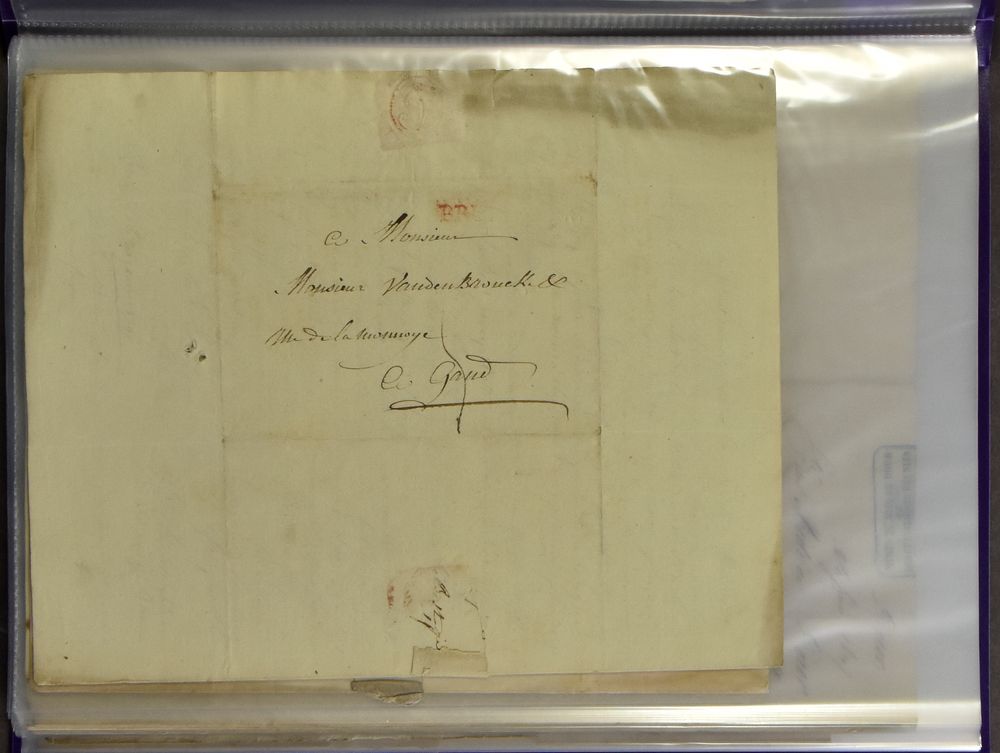 BR
A Monsieur
Monsieur VandenBrouck &
Rue de la monnoye
A Gand